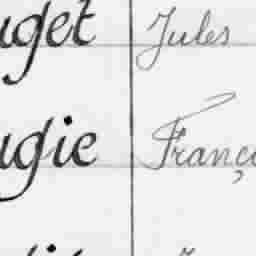 uget Jules
ugie Franço